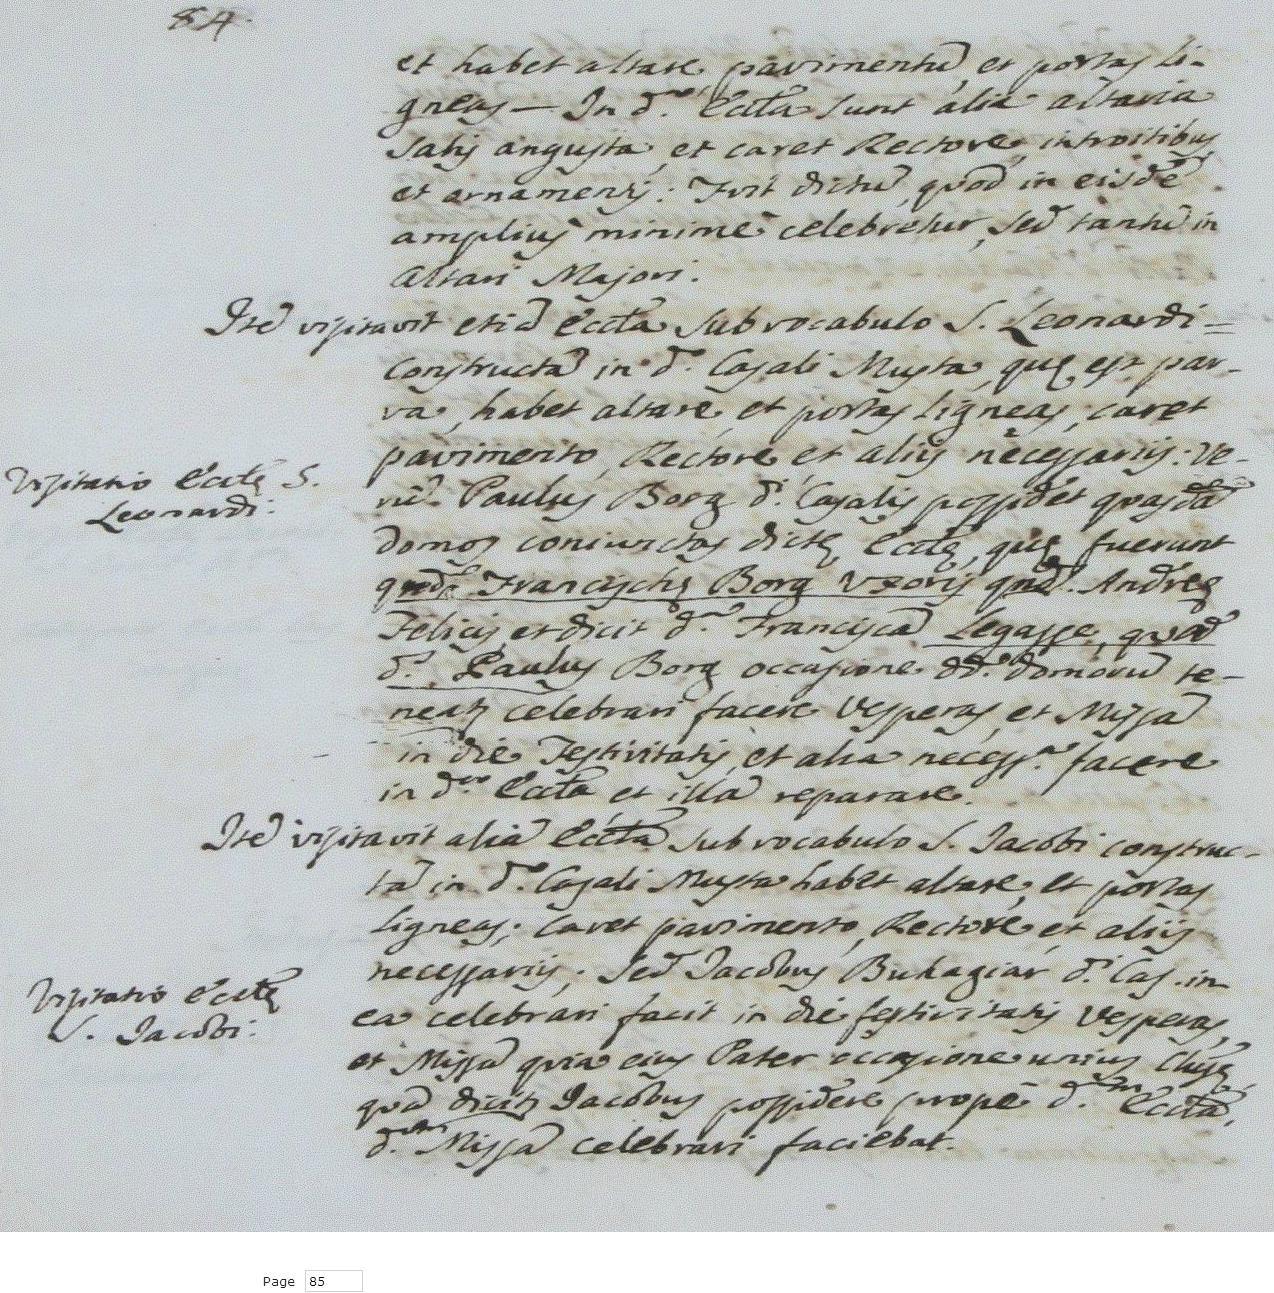 84.
et habet altare, pavimentũ, et portas li-
gneas — In d.ᵃ Eccl̃a sunt alia altaria
satis angusta, et caret Rectore, introitibus
et ornamentis: Fuit dictũ, quod in eisdẽ
amplius minime celebretur, sed tantũ in
Altari Majori.
Itẽ visitavit etiã Eccl̃a sub vocabulo S. Leonardi =
Constructã in d.ᵒ Casali Musta, quę est par-
va, habet altare, et portas ligneas, caret
pavimento, Rectore et alijs necessarijs: Ve-
Paulus Borg d.ⁱ Casalis possidet quasdã
domos coniunctas dictę Eccl̃ę, quę fuerunt
qnd̃ę Francischę Borg Uxoris qnd̃. Andreę
Felicis, et dicit d.ᵃ Francisca Legasse, quod
d.ˢ Paulus Borg occasione dd.ᵃ domorũ te-
neatᷣ celebrari facere Vesperas, et Missã
in die Festivitatis, et alia necess.ᵃ facere
in d.ᵃ Eccl̃a et illã reparare.
Visitatio Eccl̃ę S.
Leonardi:
Itẽ visitavit aliã Eccl̃ã sub vocabulo S. Jacobi construc-
tã in d.ᵒ Casali Musta habet altare, et portas
ligneas; Caret pavimento, Rectore, et alijs
necessarijs; Sed Jacobus Buhagiar d.ⁱ Cas. in
ea celebrari facit in die festivitatis Vesperas,
et Missã quia eius Pater occasione unius Clusę
quã dicitᷣ Jacobus possidere prope d.ᵃᵐ Eccl̃ã,
d.ᵃᵐ Missã celebrari faciebat.
Visitatio Eccl̃ę
S. Jacobi:
Page 85